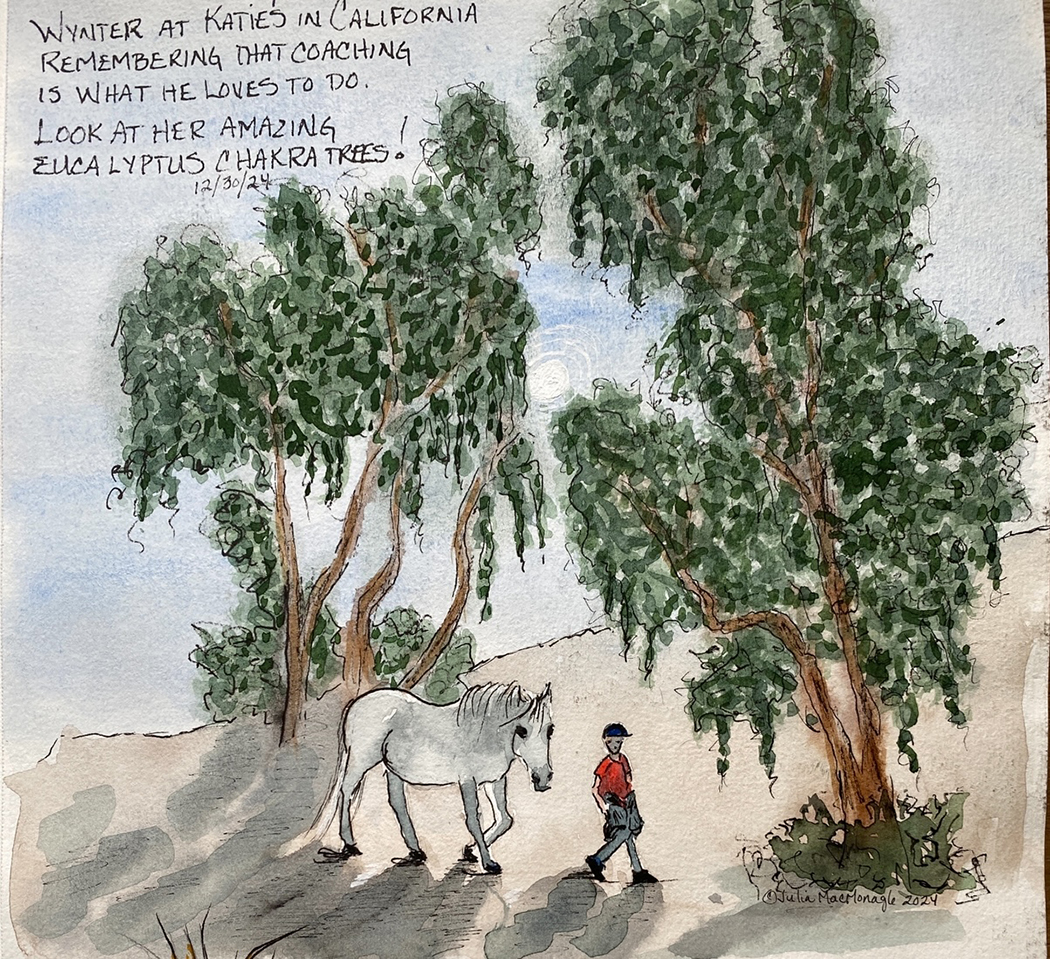 WYNTER AT KATIE'S IN CALIFORNIA
REMEMBERING THAT COACHING
IS WHAT HE LOVES TO DO.
LOOK AT HER AMAZING
EUCALYPTUS CHAKRA TREES!
12/30/24
©Julia MacMonagle 2024